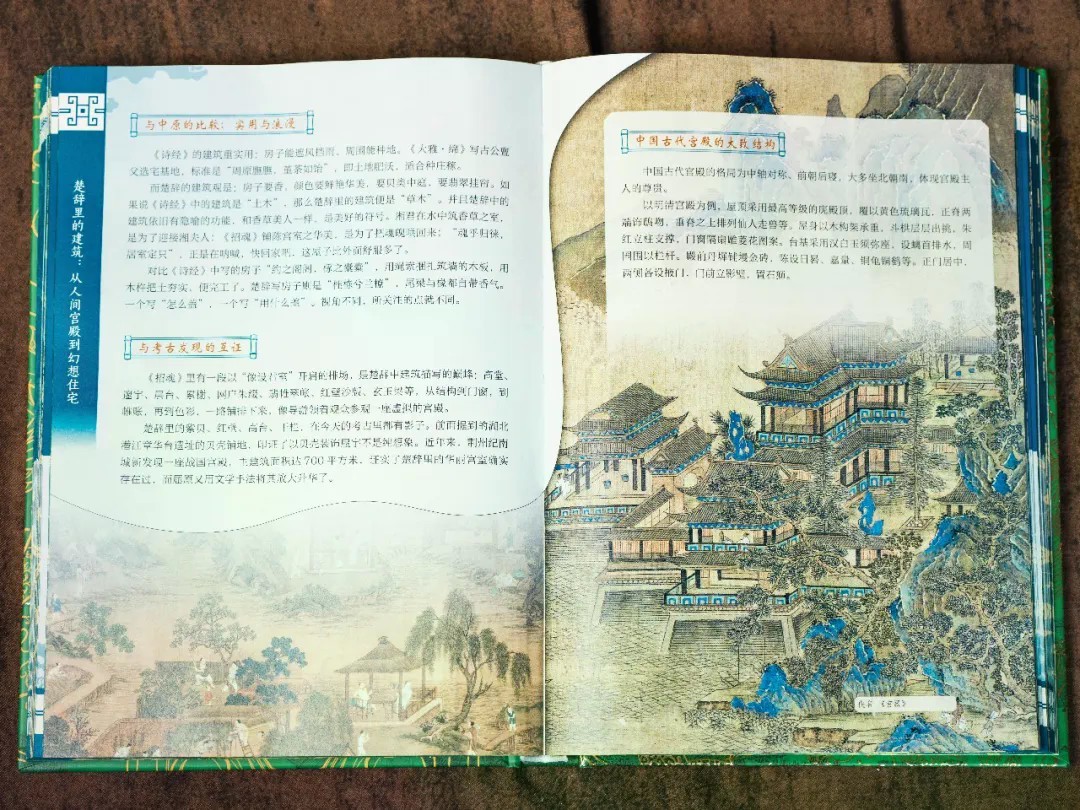 楚辞里的建筑：从人间宫殿到幻想住宅
与中原的比较：实用与浪漫
《诗经》的建筑重实用：房子能遮风挡雨，周围能种地。《大雅·绵》写古公亶
父选宅基地，标准是“周原膴膴，堇荼如饴”，即土地肥沃，适合种庄稼。
而楚辞的建筑观是：房子要香，颜色要鲜艳华美，要贝类中庭，要翡翠挂帘。如
果说《诗经》中的建筑是“土木”，那么楚辞里的建筑便是“草木”。并且楚辞中的
建筑依旧有隐喻的功能，和香草美人一样，是美好的符号。湘君在水中筑香草之室，
是为了迎接湘夫人；《招魂》铺陈宫室之华美，是为了把魂魄哄回来：“魂乎归徕，
居室定只”，正是在呐喊，快回家吧，这房子比外面舒服多了。
对比《诗经》中写的房子“约之阁阁，椓之橐橐”，用绳索捆扎筑墙的木板，用
木杵把土夯实，便完工了。楚辞写房子则是“桂栋兮兰橑”，屋梁与椽都自带香气。
一个写“怎么盖”，一个写“用什么盖”。视角不同，所关注的点就不同。
与考古发现的互证
《招魂》里有一段以“像设君室”开启的排场，是楚辞中建筑描写的巅峰：高堂、
邃宇、层台、累榭、网户朱缀、翡帷翠帐、红壁沙版、玄玉梁等，从结构到门窗，到
帷帐，再到色彩，一路铺排下来，像导游领着观众参观一座虚拟的宫殿。
楚辞里的紫贝、红壁、高台、干栏，在今天的考古里都有影子。前面提到的湖北
潜江章华台遗址的贝壳铺地，印证了以贝壳装饰殿宇不是纯想象。近年来，荆州纪南
城新发现一座战国宫殿，主建筑面积达700平方米，证实了楚辞里的华丽宫室确实
存在过，而屈原又用文学手法将其放大升华了。
中国古代宫殿的大致结构
中国古代宫殿的格局为中轴对称、前朝后寝，大多坐北朝南，体现宫殿主
人的尊贵。
以明清宫殿为例，屋顶采用最高等级的庑殿顶，覆以黄色琉璃瓦，正脊两
端饰鸱吻，垂脊之上排列仙人走兽等。屋身以木构架承重，斗栱层层出挑，朱
红立柱支撑，门窗隔扇雕菱花图案。台基采用汉白玉须弥座，设螭首排水，周
围围以栏杆。殿前丹墀铺墁金砖，陈设日晷、嘉量、铜龟铜鹤等。正门居中，
两侧各设掖门，门前立影壁，置石狮。
佚名 《宫苑》